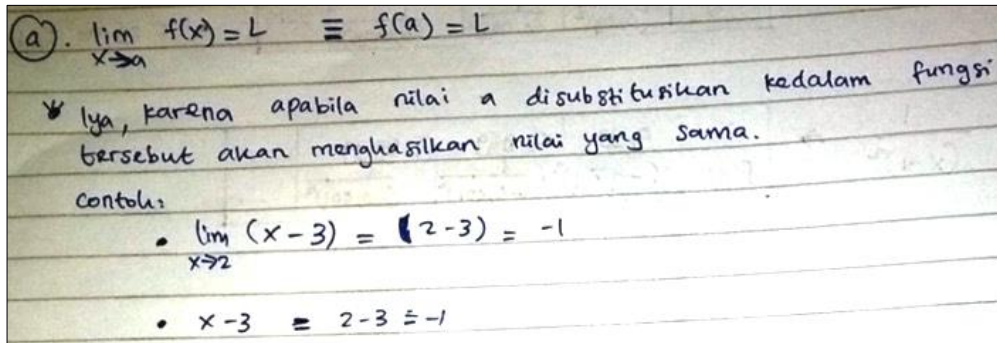 (a). lim f(x) = L ≡ f(a) = L
x→a
* Iya, karena apabila nilai a disubstitusikan kedalam fungsi
tersebut akan menghasilkan nilai yang sama.
contoh:
• lim (x - 3) = (2 - 3) = -1
x→2
• x - 3 = 2 - 3 = -1